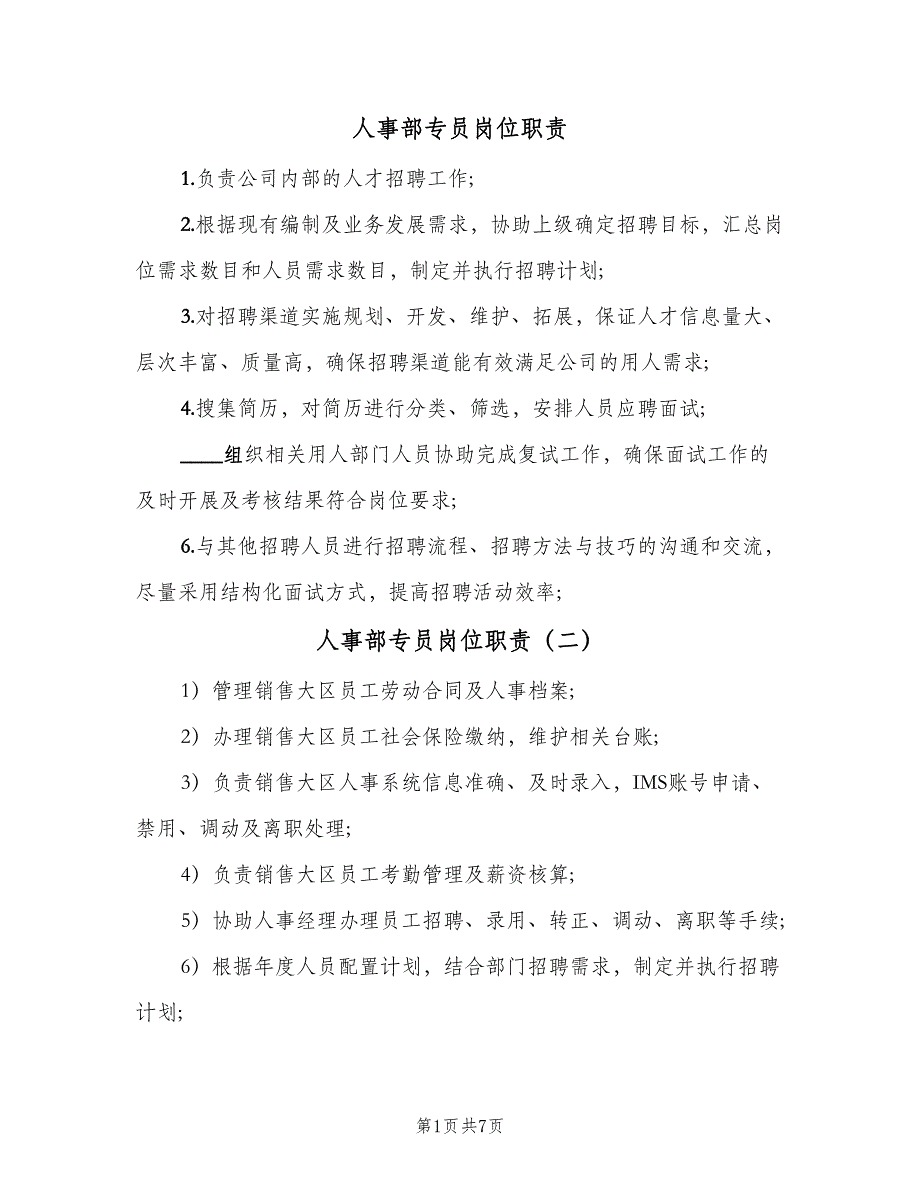 人事部专员岗位职责
1.负责公司内部的人才招聘工作;
2.根据现有编制及业务发展需求，协助上级确定招聘目标，汇总岗
位需求数目和人员需求数目，制定并执行招聘计划;
3.对招聘渠道实施规划、开发、维护、拓展，保证人才信息量大、
层次丰富、质量高，确保招聘渠道能有效满足公司的用人需求;
4.搜集简历，对简历进行分类、筛选，安排人员应聘面试;
____组织相关用人部门人员协助完成复试工作，确保面试工作的
及时开展及考核结果符合岗位要求;
6.与其他招聘人员进行招聘流程、招聘方法与技巧的沟通和交流，
尽量采用结构化面试方式，提高招聘活动效率;
人事部专员岗位职责（二）
1）管理销售大区员工劳动合同及人事档案;
2）办理销售大区员工社会保险缴纳，维护相关台账;
3）负责销售大区人事系统信息准确、及时录入，IMS账号申请、
禁用、调动及离职处理;
4）负责销售大区员工考勤管理及薪资核算;
5）协助人事经理办理员工招聘、录用、转正、调动、离职等手续;
6）根据年度人员配置计划，结合部门招聘需求，制定并执行招聘
计划;
第1页 共7页